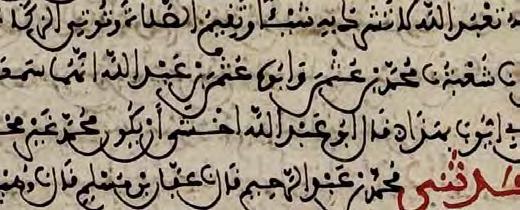 تعبد الله لا تشرك به شيئا وتقيم الصلاة وتوتي الزكا
شعبة نا محمد بن عثمن وابوه عثمن بن عبد الله انهما سمعا
ايوب بهذا قال ابو عبد الله اخشى ان يكون محمد غير مح
حدثني محمد بن عبد الرحيم قال نا عفان بن مسلم قال نا وهيب